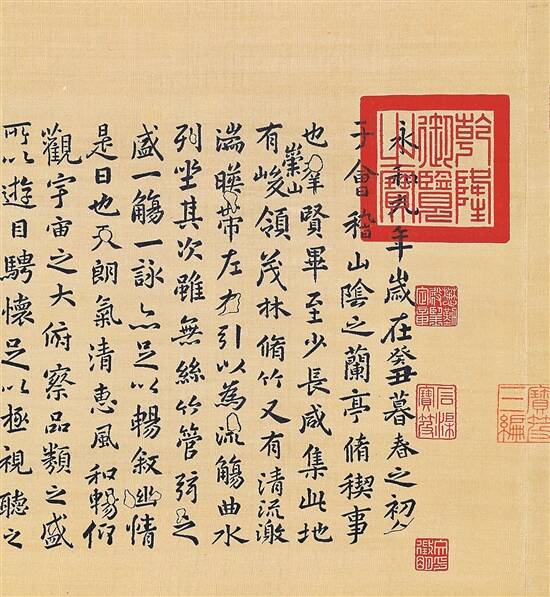 寶笈三編
乾隆御覽之寶
石渠寶笈
永和九年歲在癸丑暮春之初
于會稽山陰之蘭亭脩稧事
也羣賢畢至少長咸集此地
有崇山峻領茂林脩竹又有清流激
湍暎帶左右引以為流觴曲水
列坐其次雖無絲竹管弦之
盛一觴一詠亦足以暢敘幽情
是日也天朗氣清惠風和暢仰
觀宇宙之大俯察品類之盛
所以遊目騁懷足以極視聽之